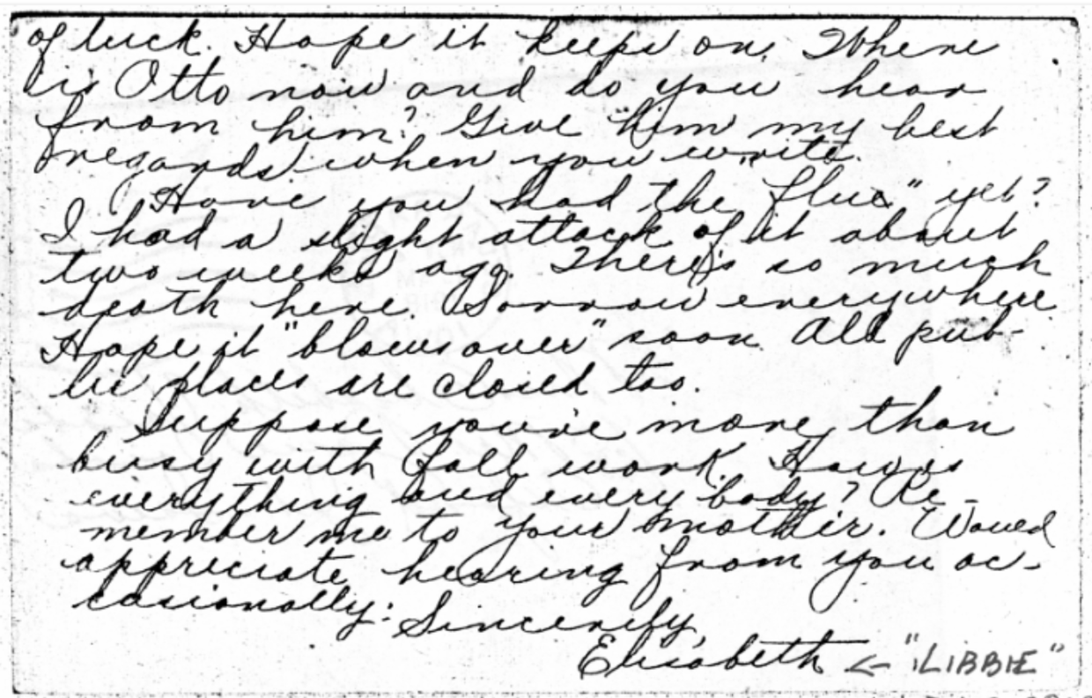 of luck. Hope it keeps on. Where
is Otto now and do you hear
from him? Give him my best
regards when you write.
Have you had the "flue" yet?
I had a slight attack of it about
two weeks ago. There's so much
death here. Sorrow everywhere
Hope it "blows over" soon. All pub-
lic places are closed too.
Suppose you're more than
busy with fall work. How is
everything and every body? Re-
member me to your mother. Would
appreciate hearing from you oc-
casionally. Sincerely,
Elisabeth ← "LIBBIE"